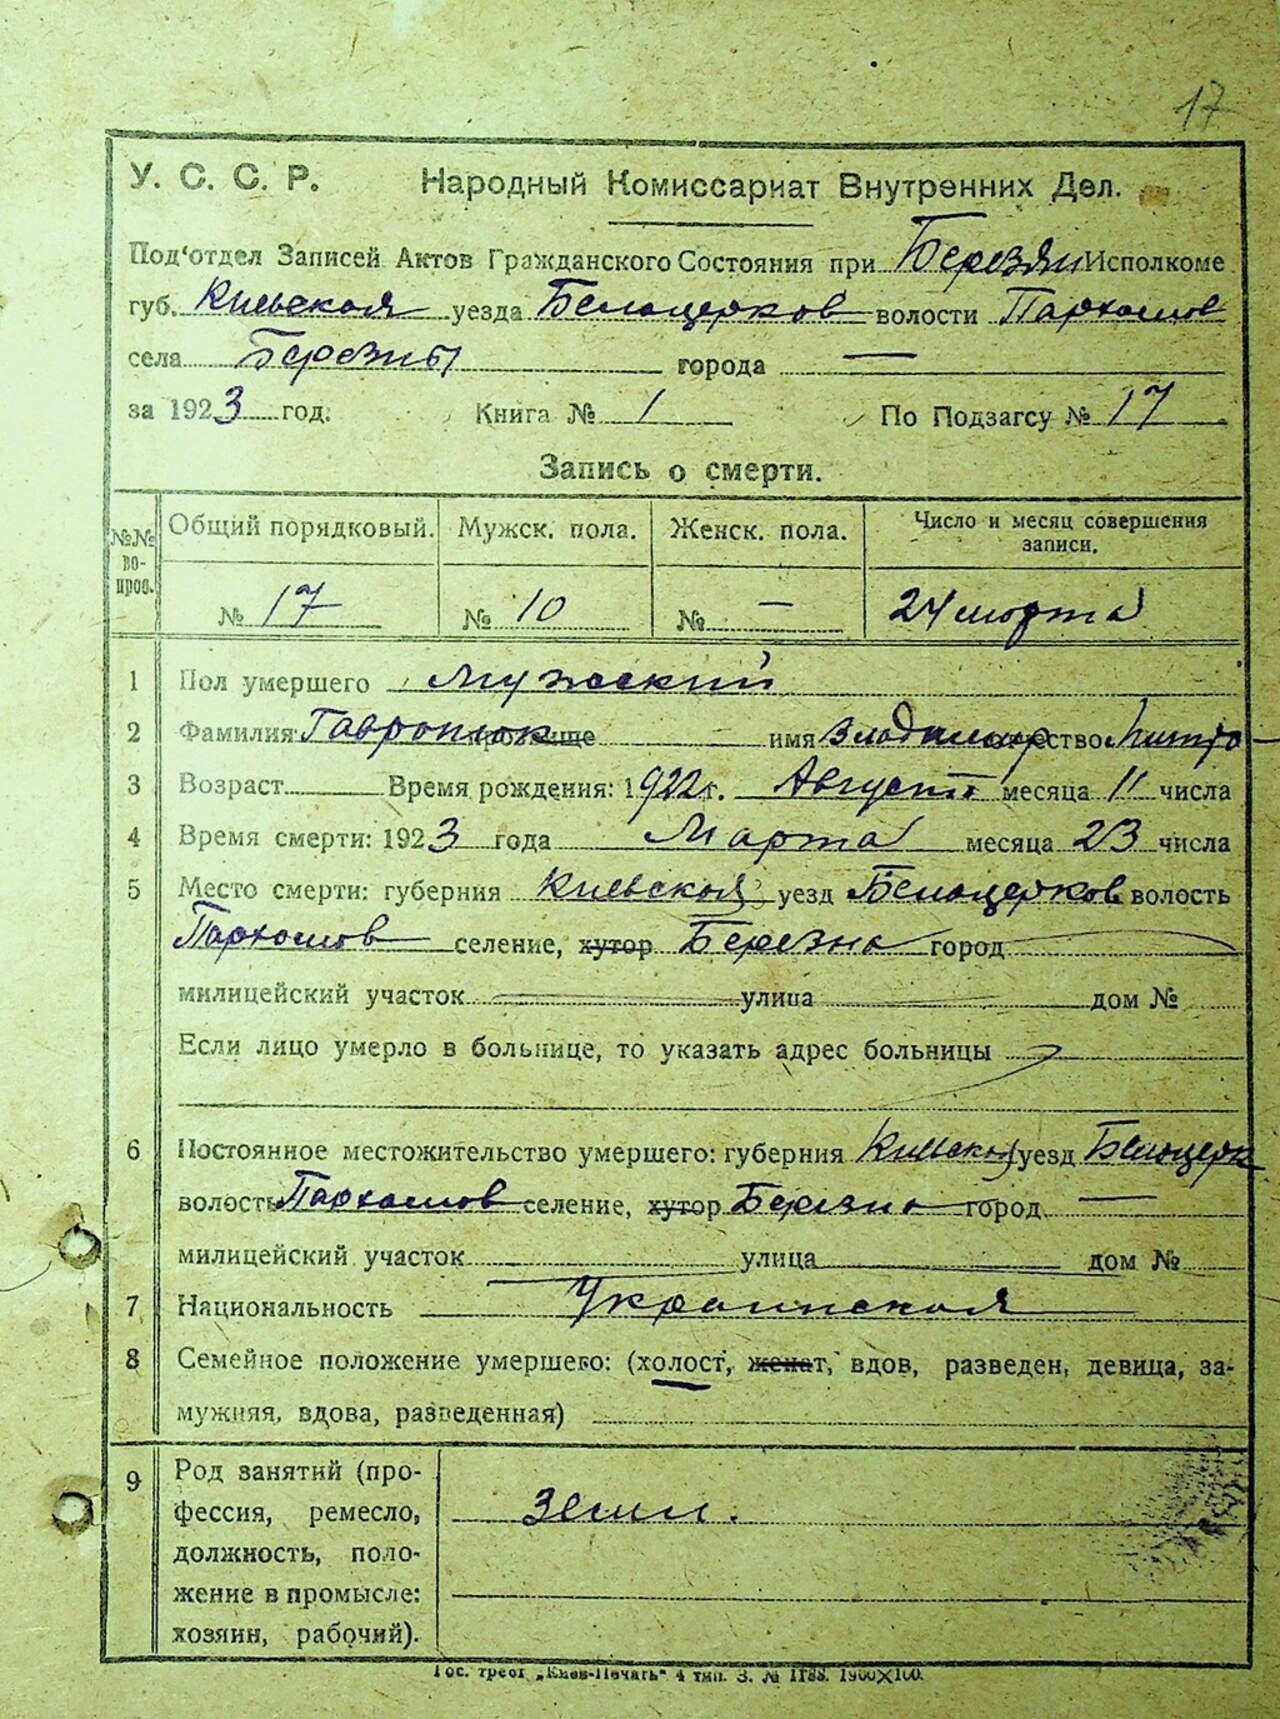 17
У. С. С. Р. Народный Комиссариат Внутренних Дел.
Под'отдел Записей Актов Гражданского Состояния при Березян Исполкоме
губ. Киевская уезда Белоцерков волости Пархомов
села Березны города —
за 1923 год. Книга № 1 По Подзагсу № 17
Запись о смерти.
№№ во-прос. Общий порядковый. Мужск. пола. Женск. пола. Число и месяц совершения записи.
№ 17 № 10 № — 24 марта
1 Пол умершего Мужский
2 Фамилия Гавронюк прозвище имя Владимир отчество
3 Возраст Время рождения: 1922 г. Август месяца 11 числа
4 Время смерти: 1923 года Марта месяца 23 числа
5 Место смерти: губерния Киевская уезд Белоцерков волость
Пархомов селение, хутор Березна город
милицейский участок улица дом №
Если лицо умерло в больнице, то указать адрес больницы
6 Постоянное местожительство умершего: губерния Киевская уезд Белоцерк
волость Пархомов селение, хутор Березна город —
милицейский участок улица дом №
7 Национальность Украинская
8 Семейное положение умершего: (холост, женат, вдов, разведен, девица, за-
мужняя, вдова, разведенная)
9 Род занятий (про-
фессия, ремесло, Земл.
должность, поло-
жение в промысле:
хозяин, рабочий).
Гос. трест „Киев-Печать" 4 тип. З. № 1188. 1900X100.